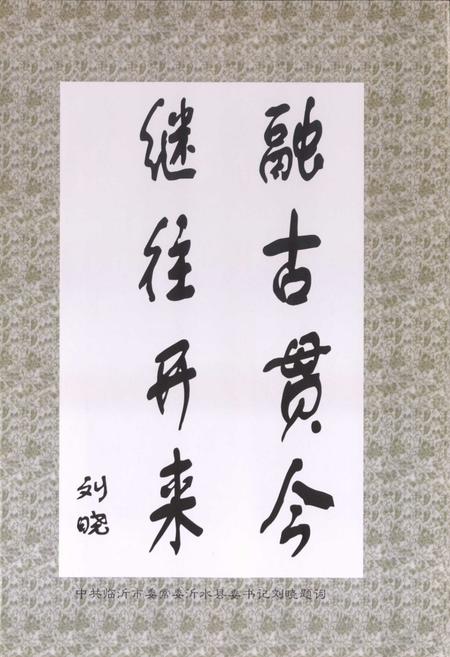 融古贯今
继往开来
刘晓
中共临沂市委常委沂水县委书记刘晓题词